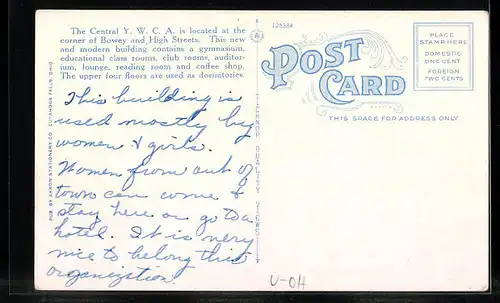 The Central Y. W. C. A. is located at the
corner of Bowey and High Streets. This new
and modern building contains a gymnasium,
educational class rooms, club rooms, auditor-
ium, lounge, reading room and coffee shop.
The upper four floors are used as dormitories.
This building is
used mostly by
women & girls.
Women from out of
town can come &
stay here or go to a
hotel. It is very
nice to belong this
organization.
PUB. BY AKRON STATIONERY CO., CUYAHOGA FALLS, OHIO
QUALITY VIEWS
128384
POST
CARD
THIS SPACE FOR ADDRESS ONLY
PLACE
STAMP HERE
DOMESTIC
ONE CENT
FOREIGN
TWO CENTS
U-OH